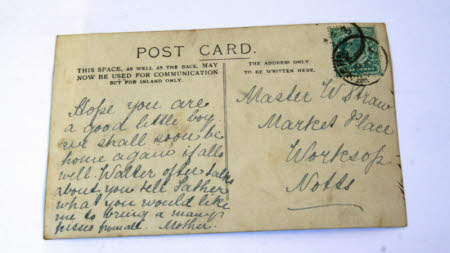 POST CARD.
THIS SPACE, AS WELL AS THE BACK, MAY
NOW BE USED FOR COMMUNICATION
BUT FOR INLAND ONLY.
THE ADDRESS ONLY
TO BE WRITTEN HERE.
Hope you are
a good little boy
we shall soon be
home again if all's
well. Walter often talks
about you tell Father
what you would like
me to bring a many
kisses from all. Mother.
Master W Straw
Market Place
Worksop
Notts